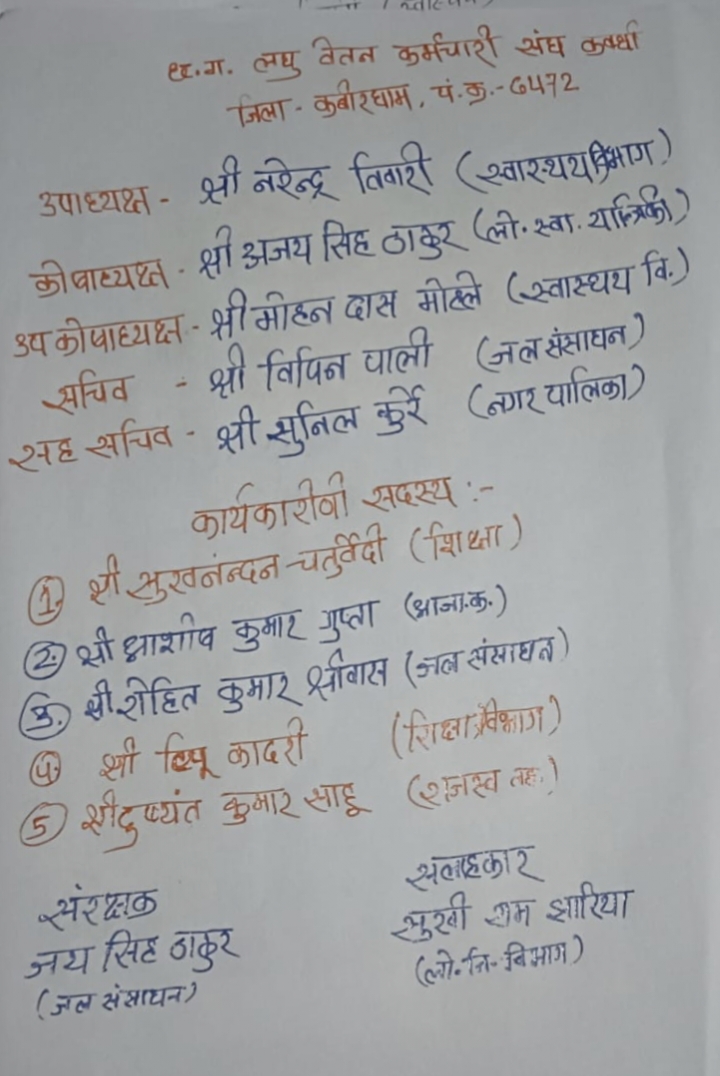 छ.ग. लघु वेतन कर्मचारी संघ कवर्धा
जिला - कबीरधाम, पं.क्र.-6472
उपाध्यक्ष - श्री नरेन्द्र तिवारी (स्वास्थय विभाग)
कोषाध्यक्ष - श्री अजय सिंह ठाकुर (लो. स्वा. यांत्रिकी)
उप कोषाध्यक्ष - श्री मोहन दास मोहले (स्वास्थय वि.)
सचिव - श्री विपिन पाली (जल संसाधन)
सह सचिव - श्री सुनिल कुर्रे (नगर पालिका)
कार्यकारीणी सदस्य :-
1. श्री सुखनंन्दन चतुर्वेदी (शिक्षा)
2. श्री आशीष कुमार गुप्ता (आजा.क.)
3. श्री रोहित कुमार श्रीवास (जल संसाधन)
4. श्री टिपू कादरी (शिक्षा विभाग)
5 श्री दुष्यंत कुमार साहू (राजस्व तह.)
संरक्षक
जय सिंह ठाकुर
(जल संसाधन)
सलाहकार
सुखी राम झारिया
(लो. नि. विभाग)